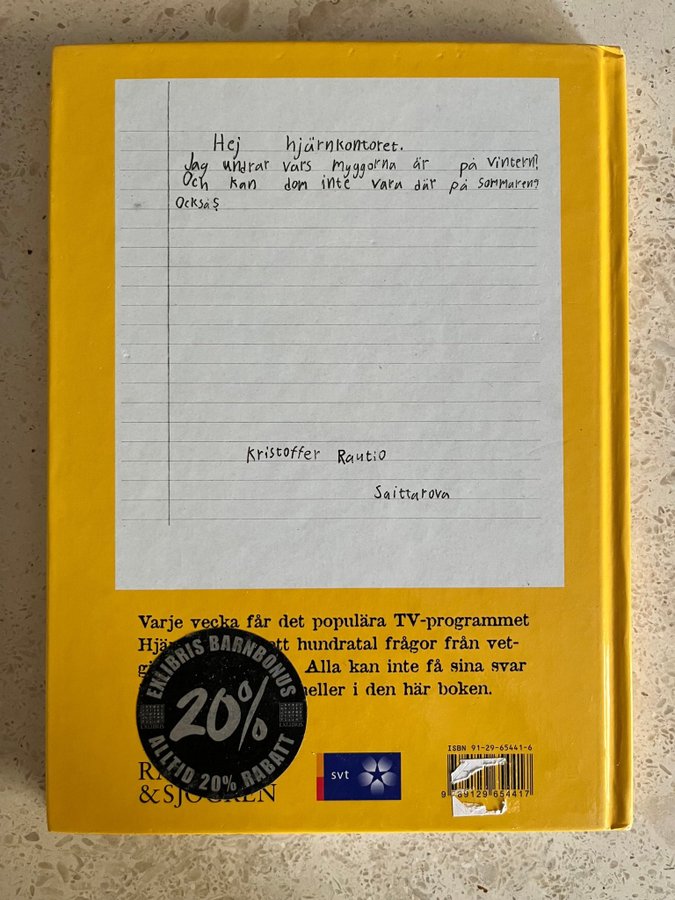 Hej hjärnkontoret.
Jag undrar vars myggorna är på vintern?
Och kan dom inte vara där på sommaren?
Också?
Kristoffer Rautio
Saittarova
Varje vecka får det populära TV-programmet
ett hundratal frågor från vet-
Alla kan inte få sina svar
heller i den här boken.
EXLIBRIS BARNBONUS
20%
ALLTID 20% RABATT
& SJÖGREN
svt
ISBN 91-29-65441-6
9 789129 654417